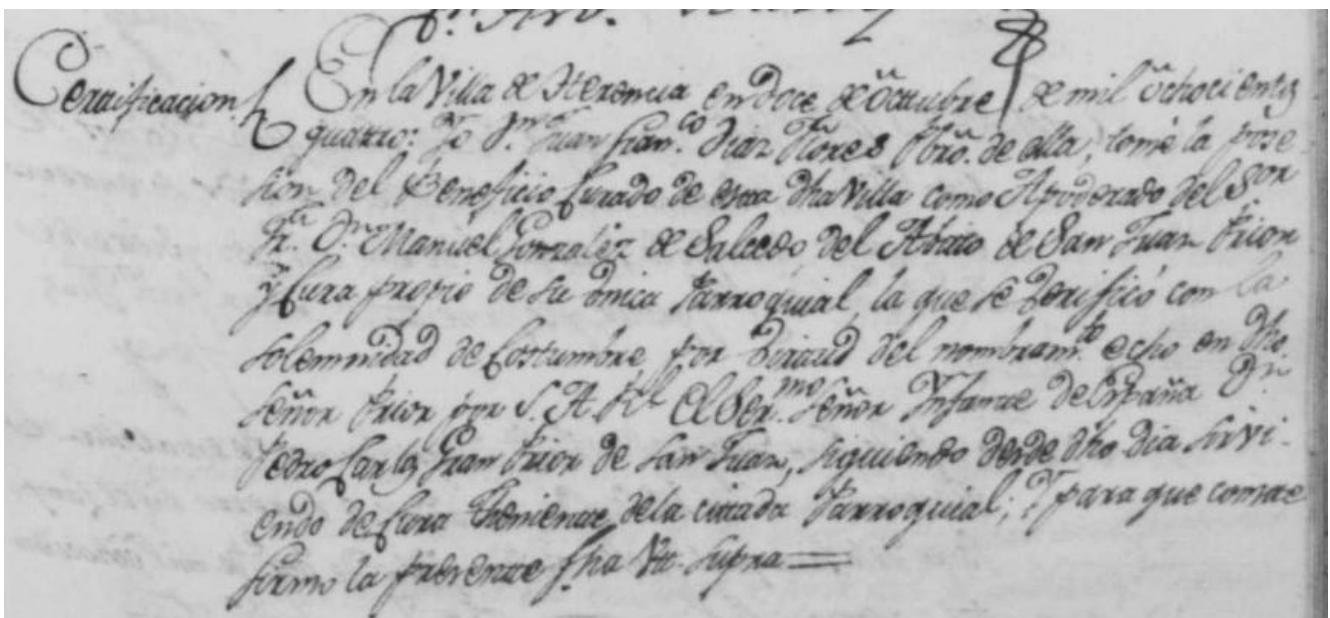 Certificacion.
En la Villa de Herencia en doce de Octubre de mil ochocientos
quatro: Yo Dn. Juan Franco. Diaz Flores Pbro. de ella, tomé la pose-
sion del Beneficio Curado de esta dha Villa como Apoderado del Sor
Fr. Dn. Manuel Gonzalez de Salcedo del Abito de San Juan Prior
y Cura propio de su única Parroquial, la que se verificó con la
solemnidad de Costumbre por virtud del nombramto. echo en dho.
Señor Prior por S. A. Rl. el Sermo. Señor Infante de España Dn.
Pedro Carlos Gran Prior de San Juan, siguiendo desde dho dia sirvi-
endo de Cura theniente de la citada Parroquial; Y para que conste
firmo la presente fha Ut. supra=